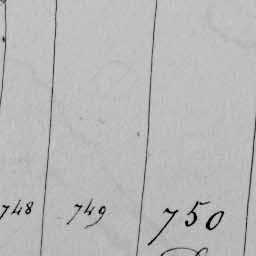 748 749 750